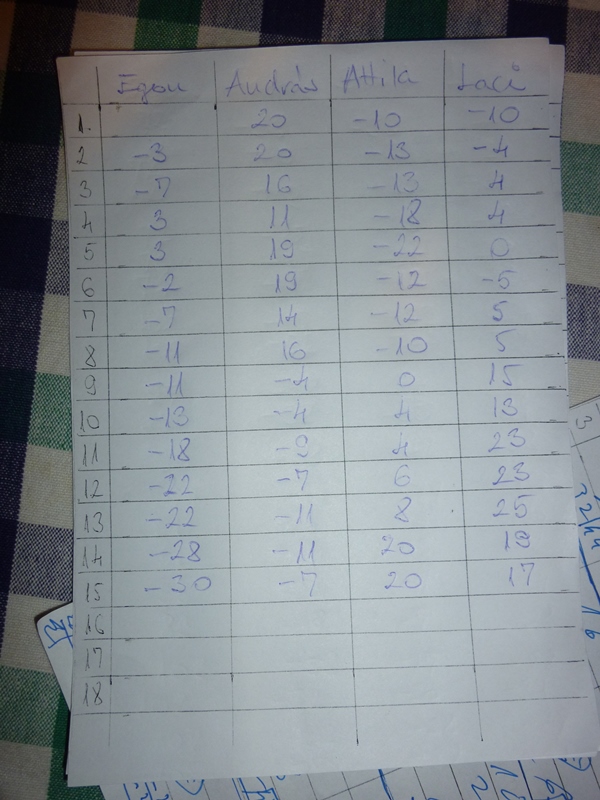 Egon András Attila Laci
1. 20 -10 -10
2 -3 20 -13 -4
3 -7 16 -13 4
4 3 11 -18 4
5 3 19 -22 0
6 -2 19 -12 -5
7 -7 14 -12 5
8 -11 16 -10 5
9 -11 -4 0 15
10 -13 -4 4 13
11 -18 -9 4 23
12 -22 -7 6 23
13 -22 -11 8 25
14 -28 -11 20 19
15 -30 -7 20 17
16
17
18